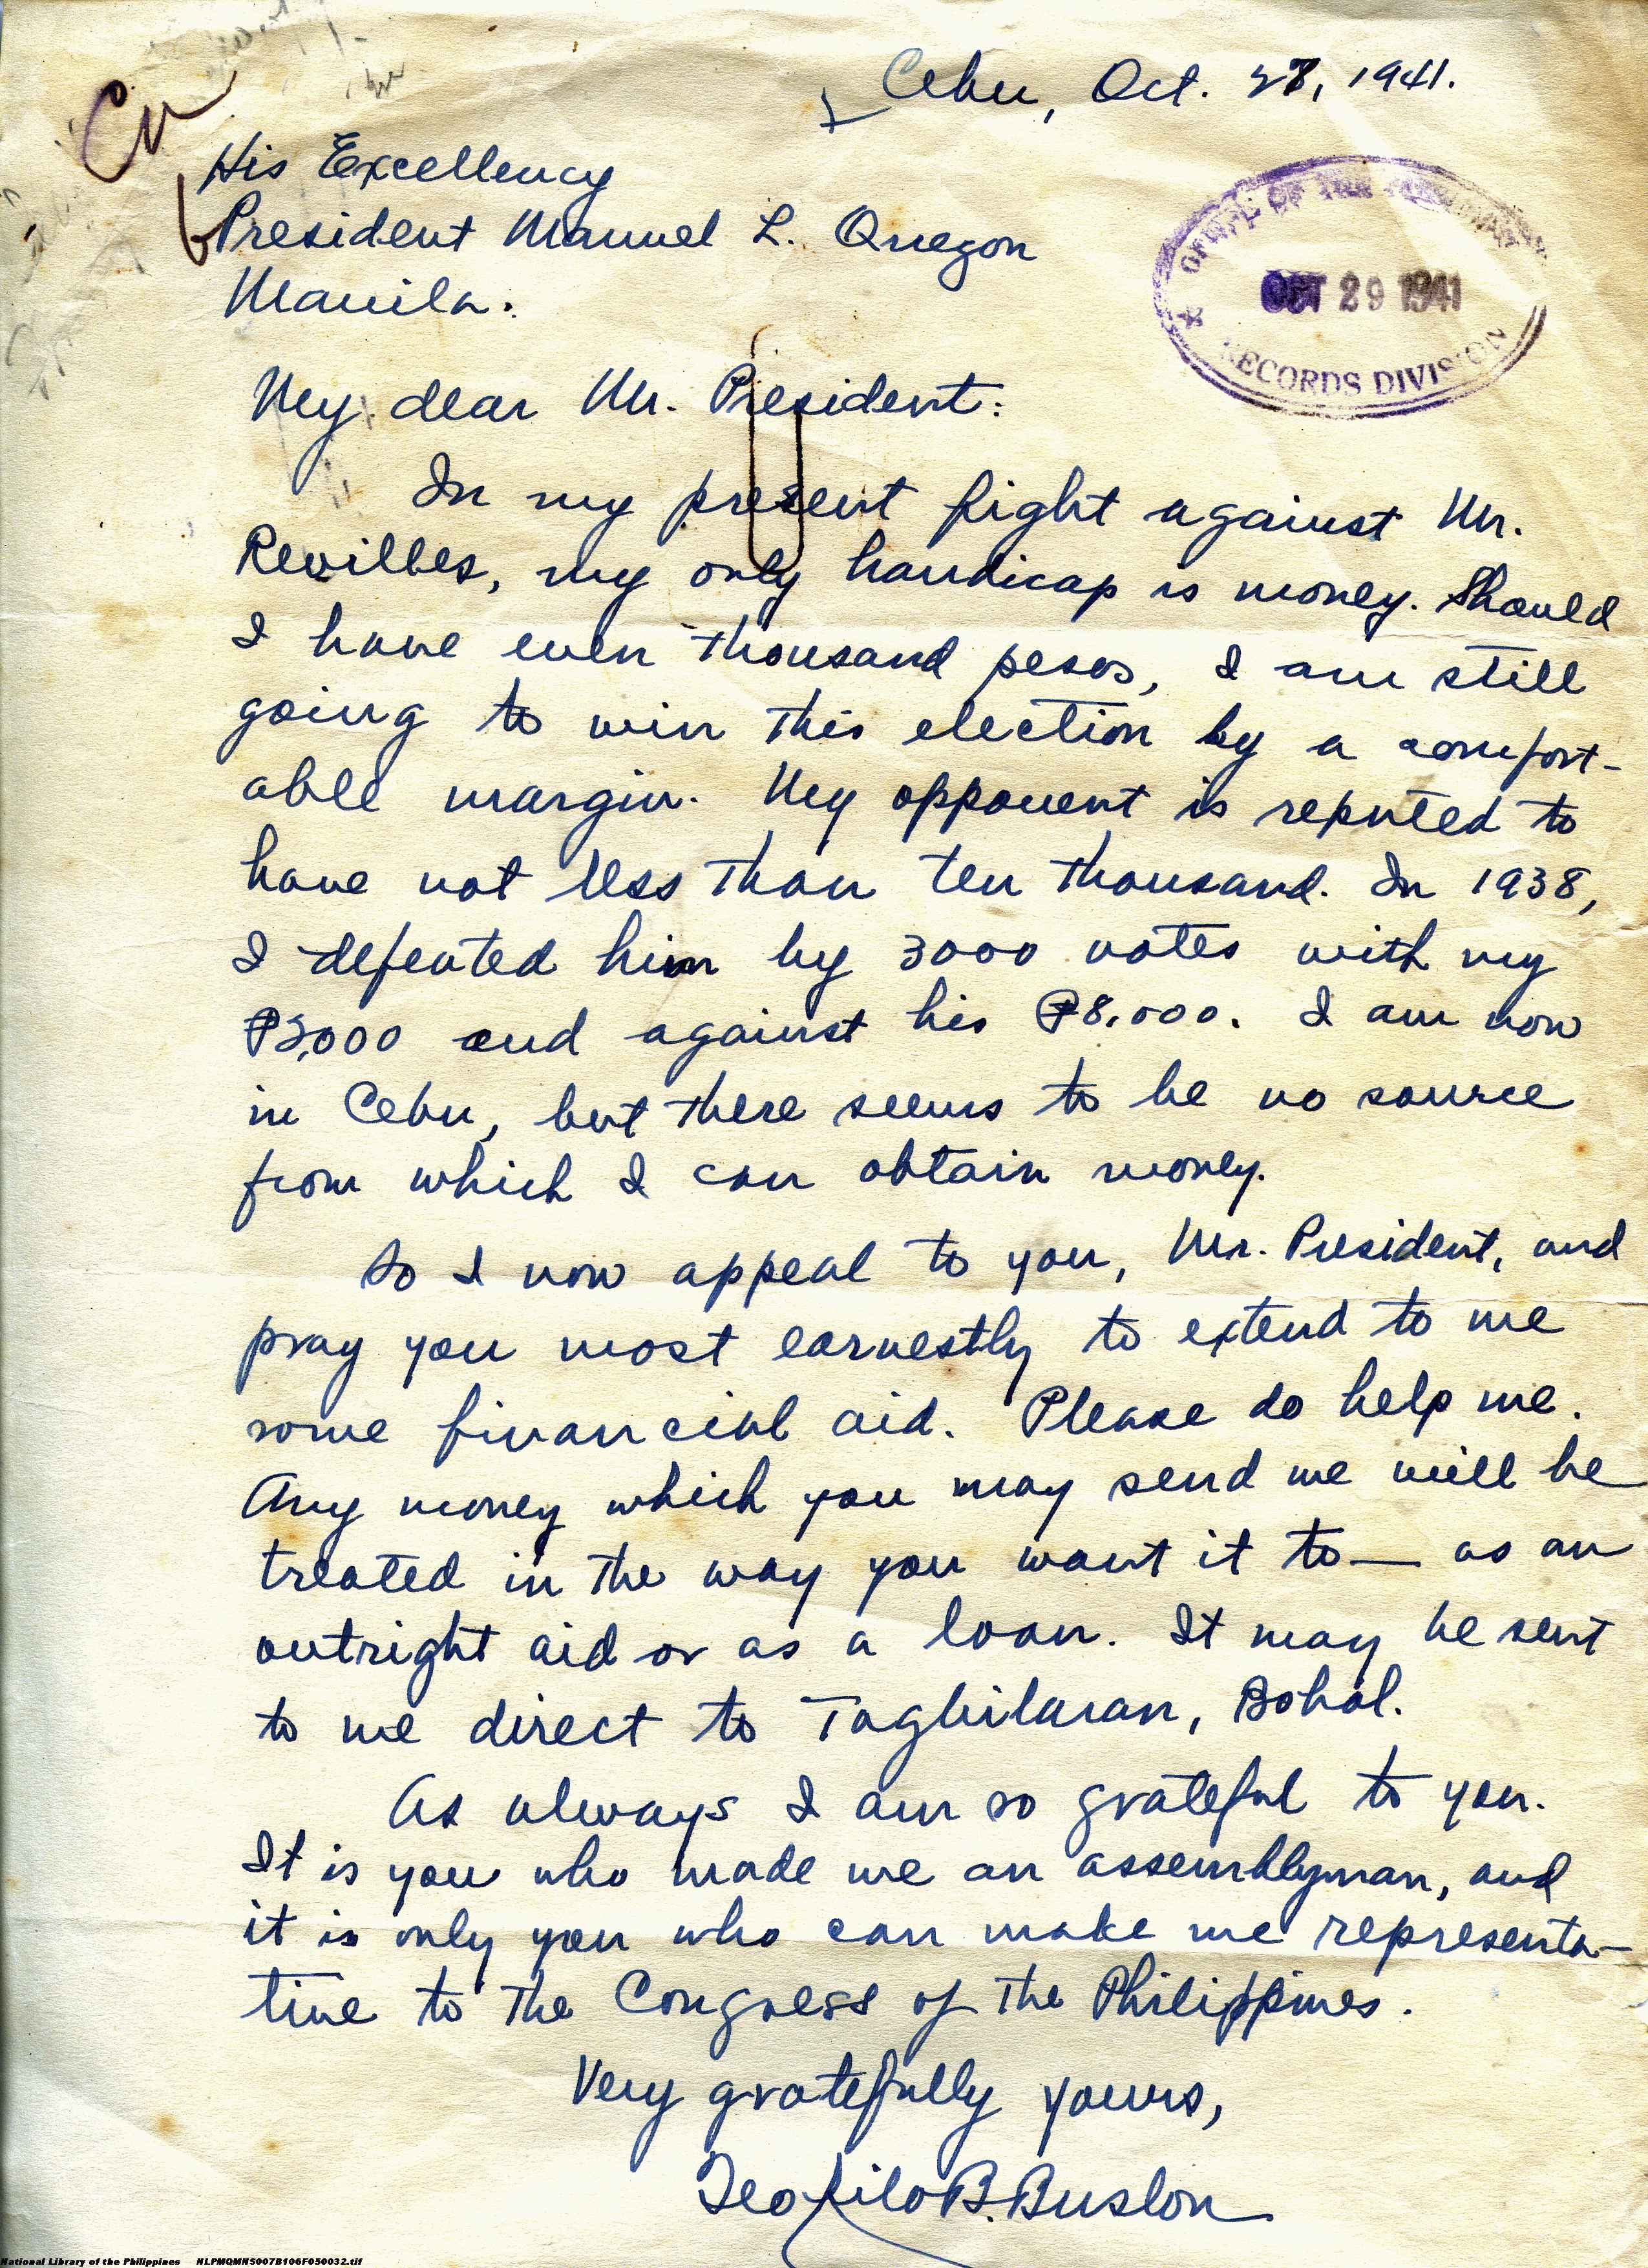 Cebu, Oct. 27, 1941.
His Excellency
President Manuel L. Quezon
Manila.
OFFICE OF THE PRESIDENT
OCT 29 1941
RECORDS DIVISION
My dear Mr. President:
In my present fight against Mr.
Revilles, my only handicap is money. Should
I have even thousand pesos, I am still
going to win this election by a comfort-
able margin. My opponent is reputed to
have not less than ten thousand. In 1938,
I defeated him by 3000 votes with my
₱3,000 and against his ₱8,000. I am now
in Cebu, but there seems to be no source
from which I can obtain money.
So I now appeal to you, Mr. President, and
pray you most earnestly to extend to me
some financial aid. Please do help me.
Any money which you may send me will be
treated in the way you want it to — as an
outright aid or as a loan. It may be sent
to me direct to Tagbilaran, Bohol.
As always I am so grateful to you.
It is you who made me an assemblyman, and
it is only you who can make me representa-
tive to the Congress of the Philippines.
Very gratefully yours,
Teofilo B. Buslon
National Library of the Philippines NLPMQMNS007B106F050032.tif